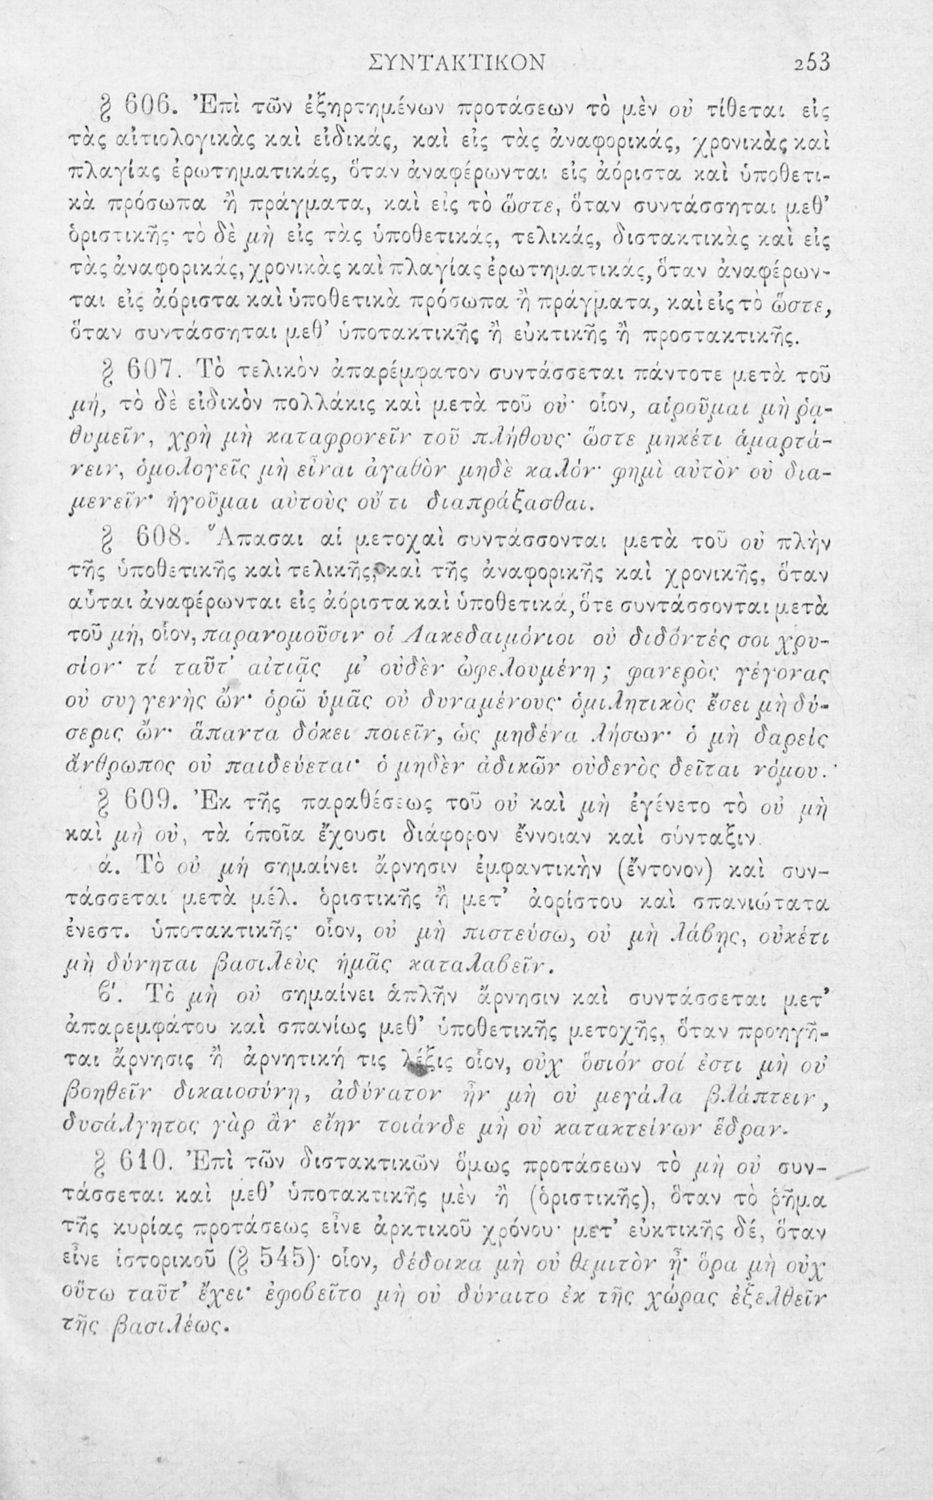 ΣΥΝΤΑΚΤΙΚΟΝ 253
§ 606. Ἐπὶ τῶν ἐξηρτημένων προτάσεων τὸ μὲν οὐ τίθεται εἰς
τὰς αἰτιολογικὰς καὶ εἰδικάς, καὶ εἰς τὰς ἀναφορικάς, χρονικὰς καὶ
πλαγίας ἐρωτηματικάς, ὅταν ἀναφέρωνται εἰς ἀόριστα καὶ ὑποθετι-
κὰ πρόσωπα ἢ πράγματα, καὶ εἰς τὸ ὥστε, ὅταν συντάσσηται μεθ’
ὁριστικῆς· τὸ δὲ μὴ εἰς τὰς ὑποθετικάς, τελικάς, διστακτικὰς καὶ εἰς
τὰς ἀναφορικάς, χρονικὰς καὶ πλαγίας ἐρωτηματικάς, ὅταν ἀναφέρων-
ται εἰς ἀόριστα καὶ ὑποθετικὰ πρόσωπα ἢ πράγματα, καὶ εἰς τὸ ὥστε,
ὅταν συντάσσηται μεθ’ ὑποτακτικῆς ἢ εὐκτικῆς ἢ προστακτικῆς.
§ 607. Τὸ τελικὸν ἀπαρέμφατον συντάσσεται πάντοτε μετὰ τοῦ
μή, τὸ δὲ εἰδικὸν πολλάκις καὶ μετὰ τοῦ οὐ· οἷον, αἱροῦμαι μὴ ῥα-
θυμεῖν, χρὴ μὴ καταφρονεῖν τοῦ πλήθους· ὥστε μηκέτι ἁμαρτά-
νειν, ὁμολογεῖς μὴ εἶναι ἀγαθὸν μηδὲ καλόν· φημὶ αὐτὸν οὐ δια-
μενεῖν· ἡγοῦμαι αὐτοὺς οὔ τι διαπράξασθαι.
§ 608. Ἅπασαι αἱ μετοχαὶ συντάσσονται μετὰ τοῦ οὐ πλὴν
τῆς ὑποθετικῆς καὶ τελικῆς, καὶ τῆς ἀναφορικῆς καὶ χρονικῆς, ὅταν
αὗται ἀναφέρωνται εἰς ἀόριστα καὶ ὑποθετικά, ὅτε συντάσσονται μετὰ
τοῦ μή, οἷον, παρανομοῦσιν οἱ Λακεδαιμόνιοι οὐ διδόντές σοι χρυ-
σίον· τί ταῦτ’ αἰτιᾷς μ’ οὐδὲν ὠφελουμένη; φανερὸς γέγονας
οὐ συγγενὴς ὤν· ὁρῶ ὑμᾶς οὐ δυναμένους· ὁμιλητικὸς ἔσει μὴ δύ-
σερις ὤν· ἅπαντα δόκει ποιεῖν, ὡς μηδένα λήσων· ὁ μὴ δαρεὶς
ἄνθρωπος οὐ παιδεύεται· ὁ μηδὲν ἀδικῶν οὐδενὸς δεῖται νόμου.
§ 609. Ἐκ τῆς παραθέσεως τοῦ οὐ καὶ μὴ ἐγένετο τὸ οὐ μὴ
καὶ μὴ οὐ, τὰ ὁποῖα ἔχουσι διάφορον ἔννοιαν καὶ σύνταξιν
ά. Τὸ οὐ μὴ σημαίνει ἄρνησιν ἐμφαντικὴν (ἔντονον) καὶ συν-
τάσσεται μετὰ μέλ. ὁριστικῆς ἢ μετ’ ἀορίστου καὶ σπανιώτατα
ἐνεστ. ὑποτακτικῆς· οἷον, οὐ μὴ πιστεύσω, οὐ μὴ λάβῃς, οὐκέτι
μὴ δύνηται βασιλεὺς ἡμᾶς καταλαβεῖν.
β'. Τὸ μὴ οὐ σημαίνει ἁπλῆν ἄρνησιν καὶ συντάσσεται μετ’
ἀπαρεμφάτου καὶ σπανίως μεθ’ ὑποθετικῆς μετοχῆς, ὅταν προηγῆ-
ται ἄρνησις ἢ ἀρνητική τις λέξις οἷον, οὐχ ὅσιόν σοί ἐστι μὴ οὐ
βοηθεῖν δικαιοσύνῃ, ἀδύνατον ἦν μὴ οὐ μεγάλα βλάπτειν,
δυσάλγητος γὰρ ἂν εἴην τοιάνδε μὴ οὐ κατακτείνων ἕδραν.
§ 610. Ἐπὶ τῶν διστακτικῶν ὅμως προτάσεων τὸ μὴ οὐ συν-
τάσσεται καὶ μεθ’ ὑποτακτικῆς μὲν ἢ (ὁριστικῆς), ὅταν τὸ ῥῆμα
τῆς κυρίας προτάσεως εἶνε ἀρκτικοῦ χρόνου· μετ’ εὐκτικῆς δέ, ὅταν
εἶνε ἱστορικοῦ (§ 545)· οἷον, δέδοικα μὴ οὐ θεμιτὸν ᾖ· ὅρα μὴ οὐχ
οὕτω ταῦτ’ ἔχει· ἐφοβεῖτο μὴ οὐ δύναιτο ἐκ τῆς χώρας ἐξελθεῖν
τῆς βασιλέως.